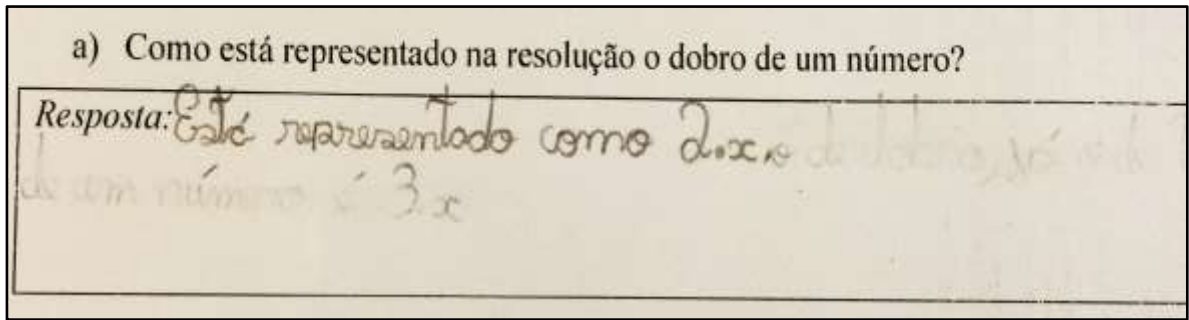 a) Como está representado na resolução o dobro de um número?
Resposta: Está representado como 2.x, o do dobro, já o
de um número é 3.x